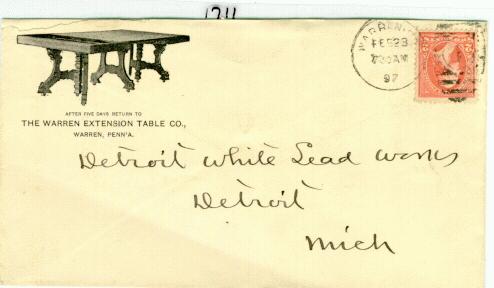 1711
WARREN
FEB 23
7 30 AM
97
AFTER FIVE DAYS RETURN TO
THE WARREN EXTENSION TABLE CO.,
WARREN, PENN'A.
Detroit White Lead Works
Detroit
Mich